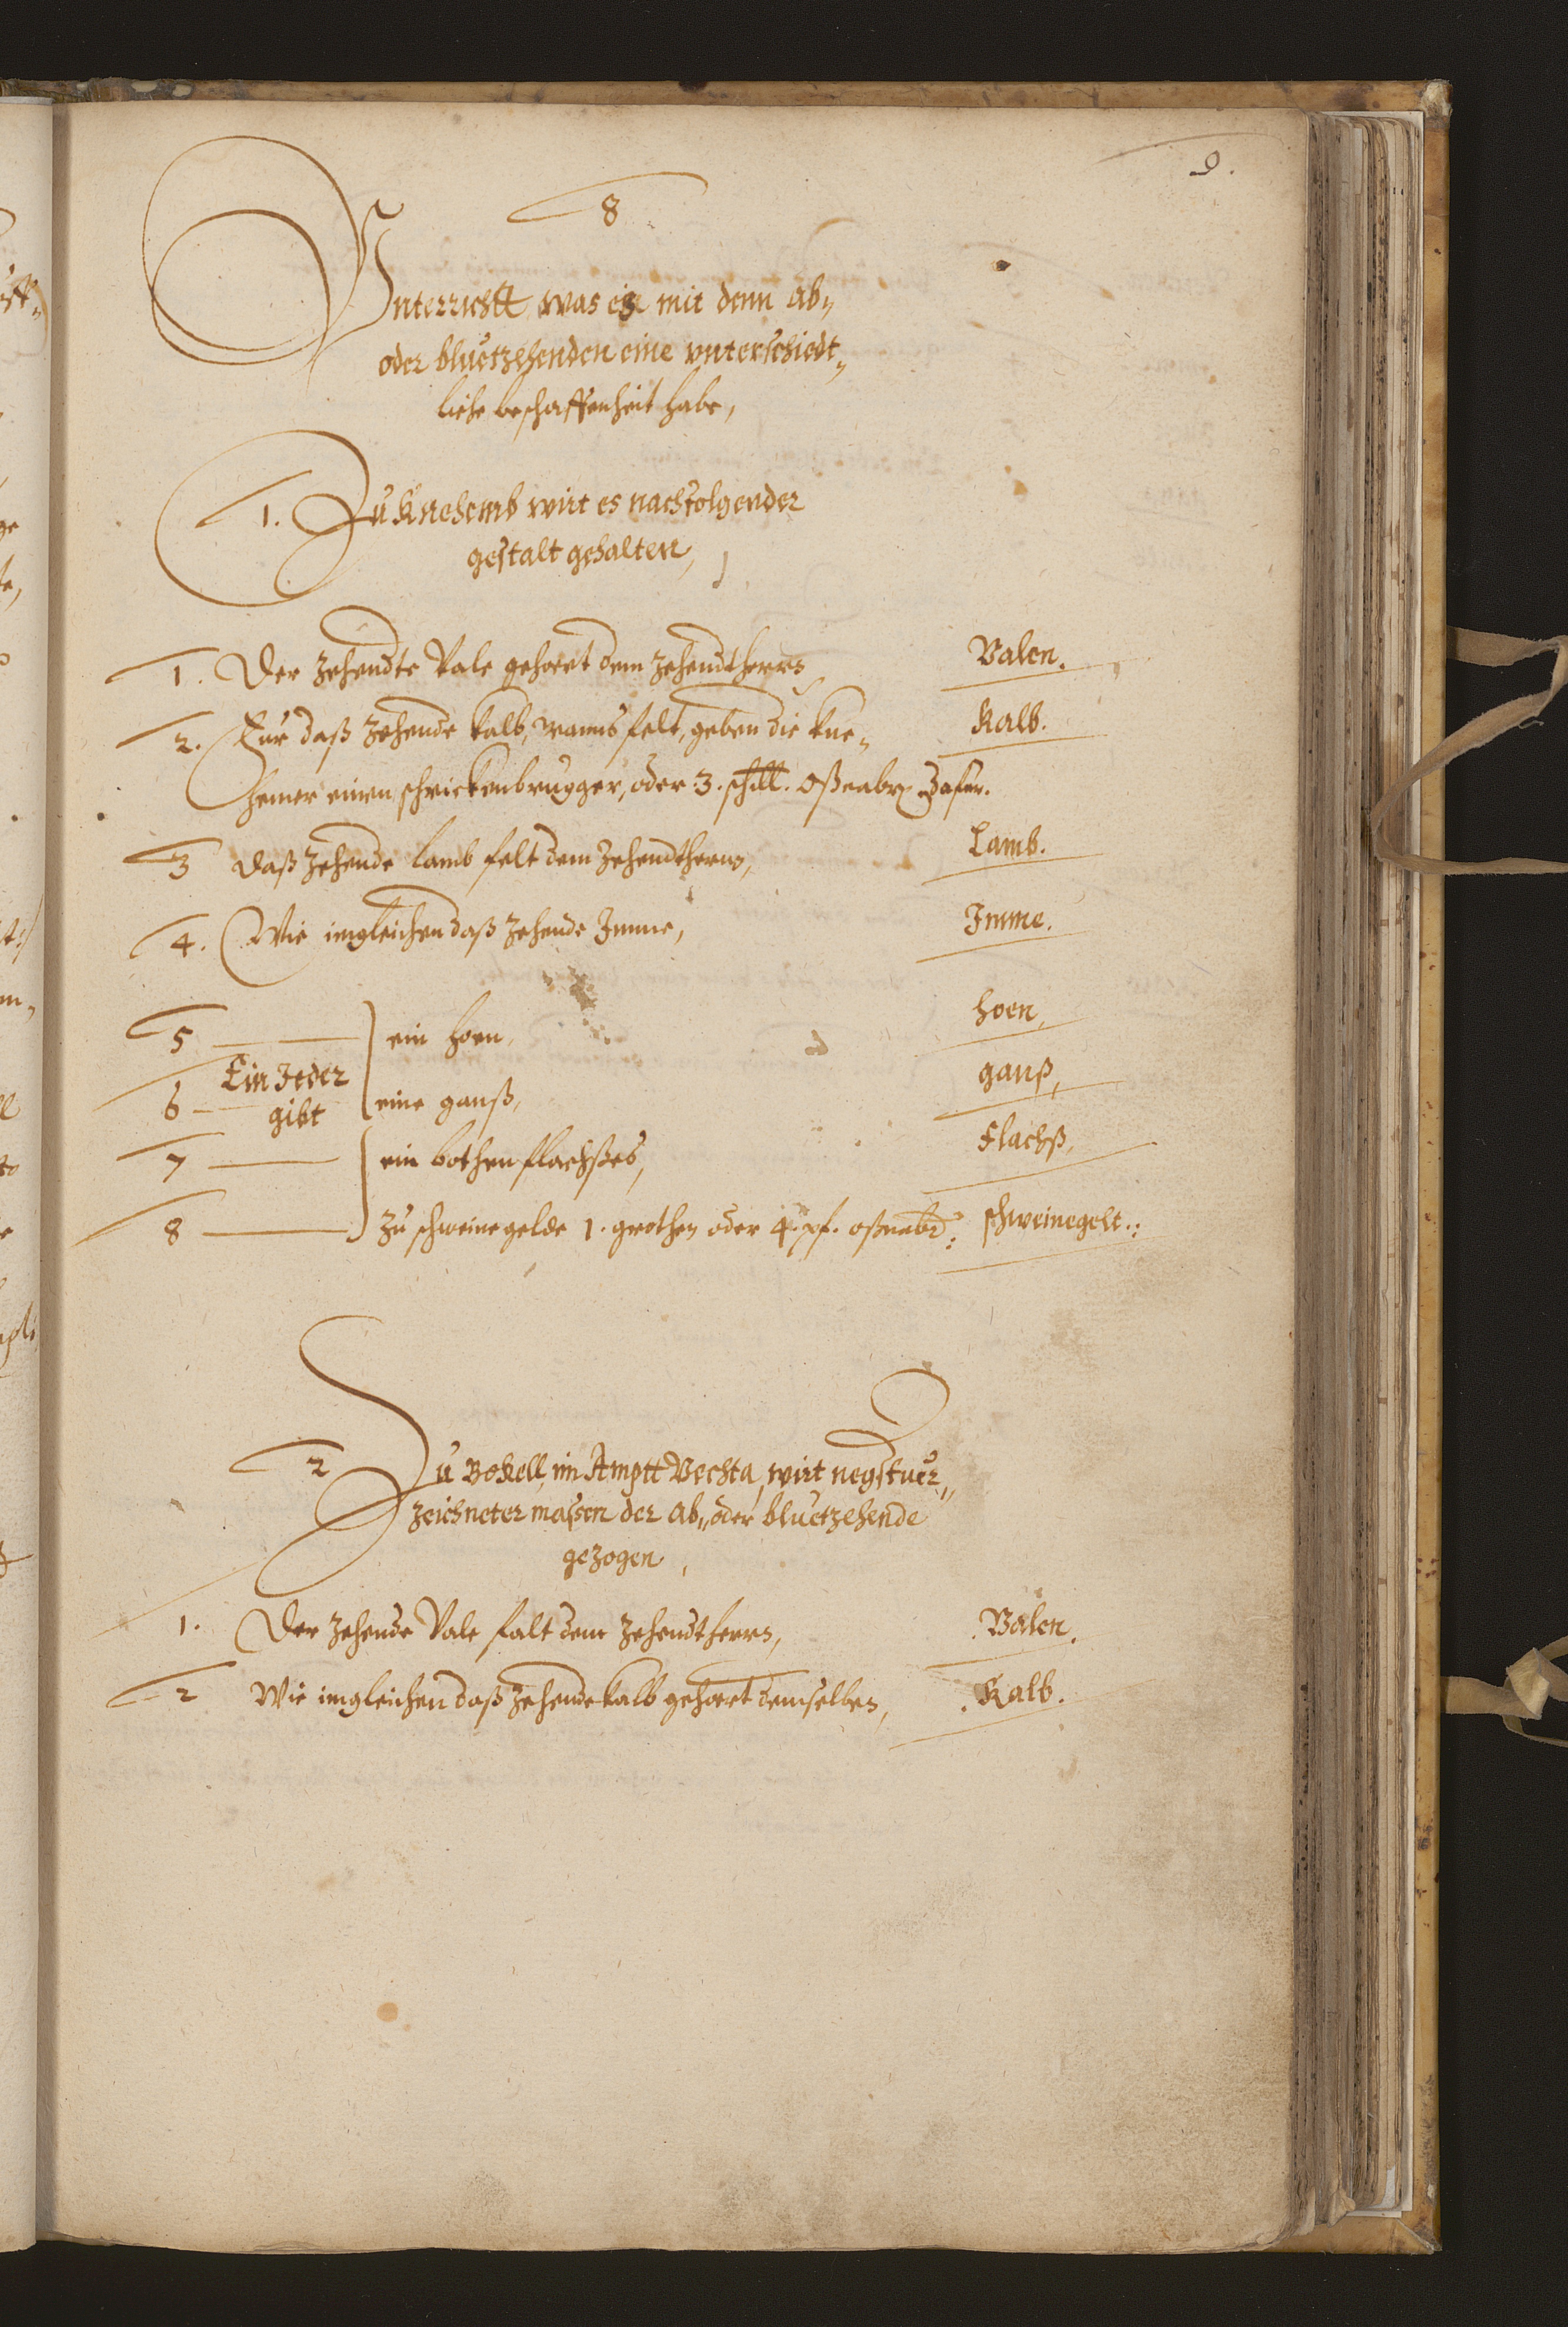 9.
8
Vnterrichtt was es mit dem Ab„
oder bluetzehenden eine vnterschiedt„
liche beschaffenheit habe,
1. Zu Knehemb wirt es nachfolgender
gestalt gehalten,
1. Der Zehendte Vale gehoert dem Zehendtherrn, Valen.
2. Fur daß Zehende kalb, wanns felt, geben die kne„ Kalb.
hemer einen schrickenbrugger, oder 3. schill. Oßnabr. dafur.
3 Daß Zehende lamb felt dem Zehendtherrn, Lamb.
4. Wie imgleichen daß Zehende Imme, Imme.
5 ein hoen, hoen,
Ein Jeder
6 gibt eine ganß, ganß,
7 ein bothen flachßes, Flachß,
8 Zu schweinegelde 1. grothen oder 4. pf. oßnabr: schweinegelt.:
2 Zu Bokell, im Amptt Vechta, wirt negstuer„
zeichneter maßen der Ab„ oder bluetzehende
gezogen,
1. Der Zehende Vale falt dem Zehendtherrn, Valen.
2 Wie imgleichen daß Zehende kalb gehoert demselben, Kalb.